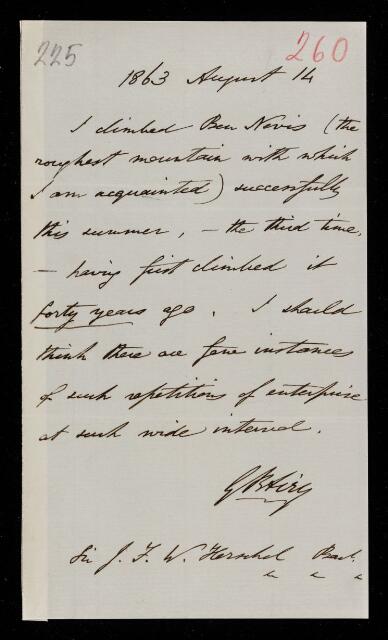 225
260
1863 August 14
I climbed Ben Nevis (the
roughest mountain with which
I am acquainted) successfully
this summer, — the third time,
— having first climbed it
forty years ago. I should
think there are few instances
of such repetitions of enterprise
at such wide interval.
G B Airy
Sir J. F. W. Herschel Bart.